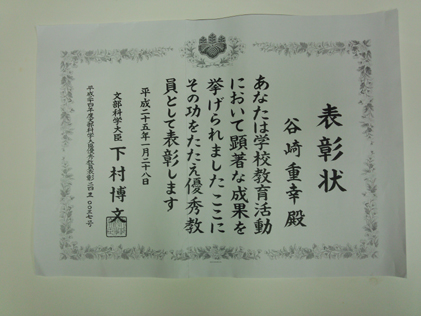 表彰状
谷崎重幸殿
あなたは学校教育活動
において顕著な成果を
挙げられましたここに
その功をたたえ優秀教
員として表彰します
平成二十五年一月二十八日
文部科学大臣 下村博文